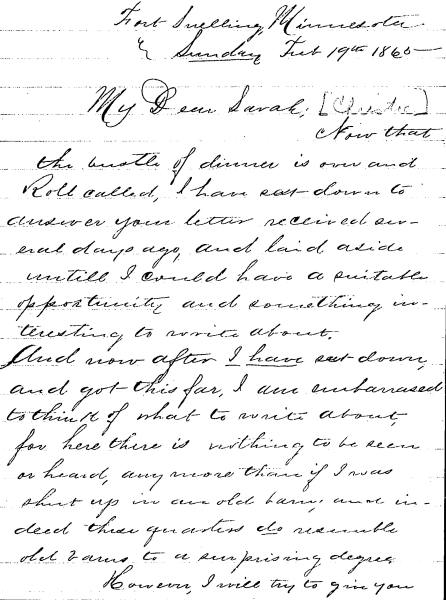 Fort Snelling, Minnesota
Sunday Feb 19th 1865
My Dear Sarah, [Christie]
Now that
the bustle of dinner is over and
Roll called, I have sat down to
answer your letter received sev-
eral days ago, and laid aside
untill I could have a suitable
opportunity and something in-
teresting to write about.
And now after I have sat down,
and got this far, I am embarrassed
to think of what to write about,
for here there is nothing to be seen
or heard, any more than if I was
shut up in an old barn; and in-
deed these quarters do resemble
old barns to a surprising degree
However, I will try to give you